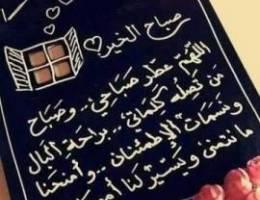 صباح الخير
اللهم عطر صباحي .. وصباح
من تصله كلماتي .. براحة البال
ونسمات الإطمئنان .. وأمنحنا
ما نتمنى ويسر لنا